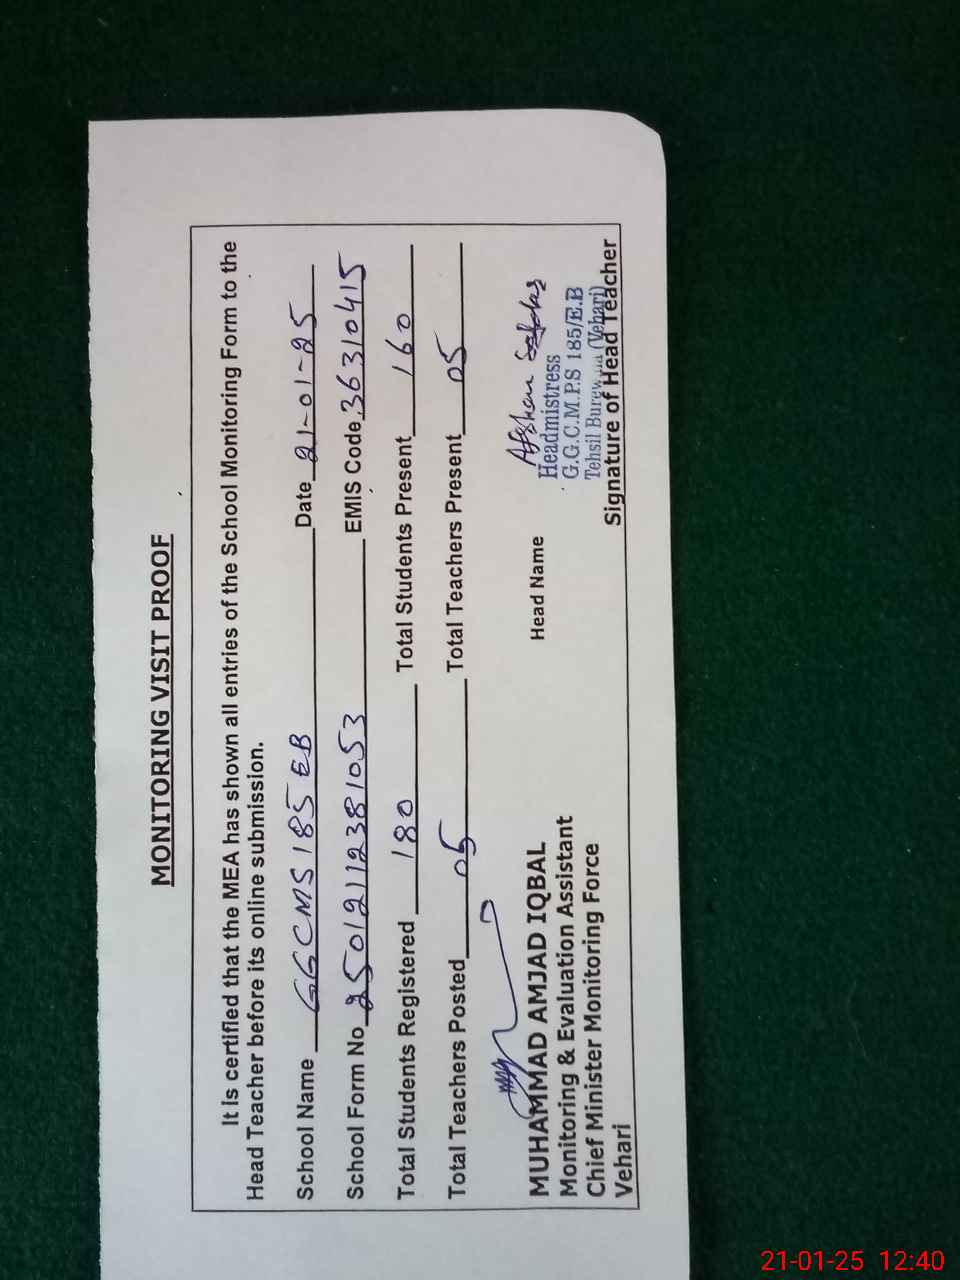 MONITORING VISIT PROOF
It Is certified that the MEA has shown all entries of the School Monitoring Form to the
Head Teacher before its online submission.
School Name GGCMS 185 EB Date 21-01-25
School Form No 2501211238 1053 EMIS Code 36310415
Total Students Registered 180 Total Students Present 160
Total Teachers Posted 05 Total Teachers Present 05
MUHAMMAD AMJAD IQBAL
Monitoring & Evaluation Assistant
Chief Minister Monitoring Force
Vehari
Head Name
Afshan
Headmistress
G.G.C.M.P.S 185/E.B
Tehsil (Vehari)
Signature of Head Teacher
21-01-25 12:40